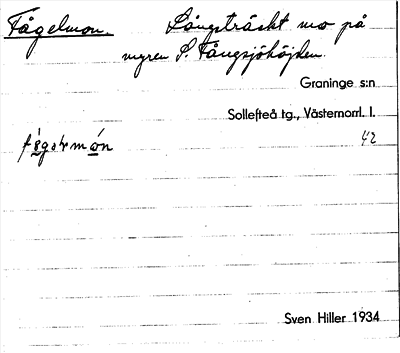 Fågelmon. Långsträckt mo på
myren S. Fångsjöhöjden.
Graninge s:n
Sollefteå tg., Västernorrl. l.
42
Sven Hiller 1934